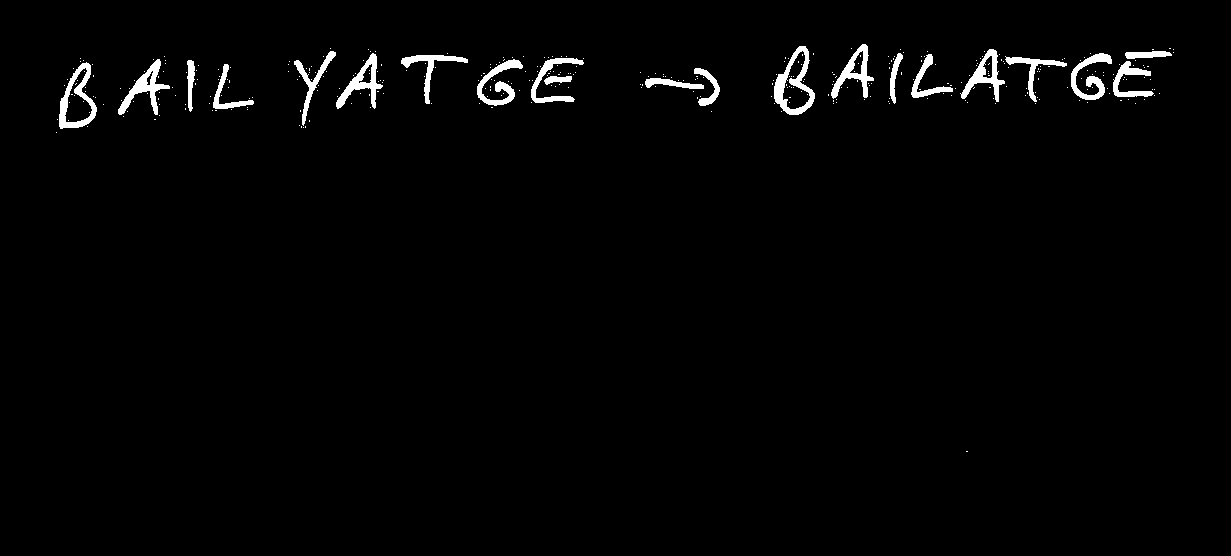 BAIL YATGE → BAILATGE